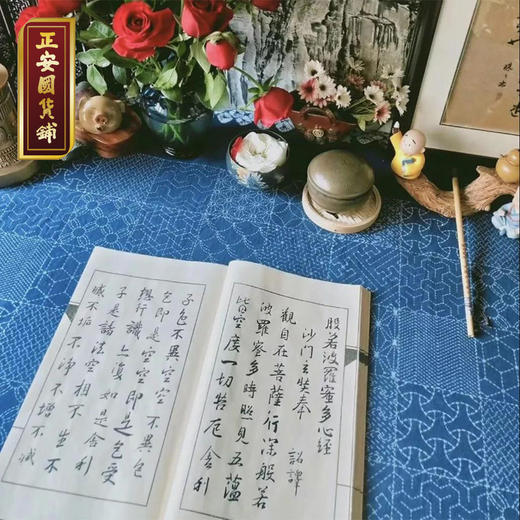 正安國貨鋪
般若波羅蜜多心經
沙门玄奘奉 詔譯
觀自在菩薩行深般若
波羅蜜多時照見五蘊
皆空度一切苦厄舍利
子色不異空空不異色
色即是空空即是色受
想行識亦復如是舍利
子是諸法空相不生不
滅不垢不淨不增不減